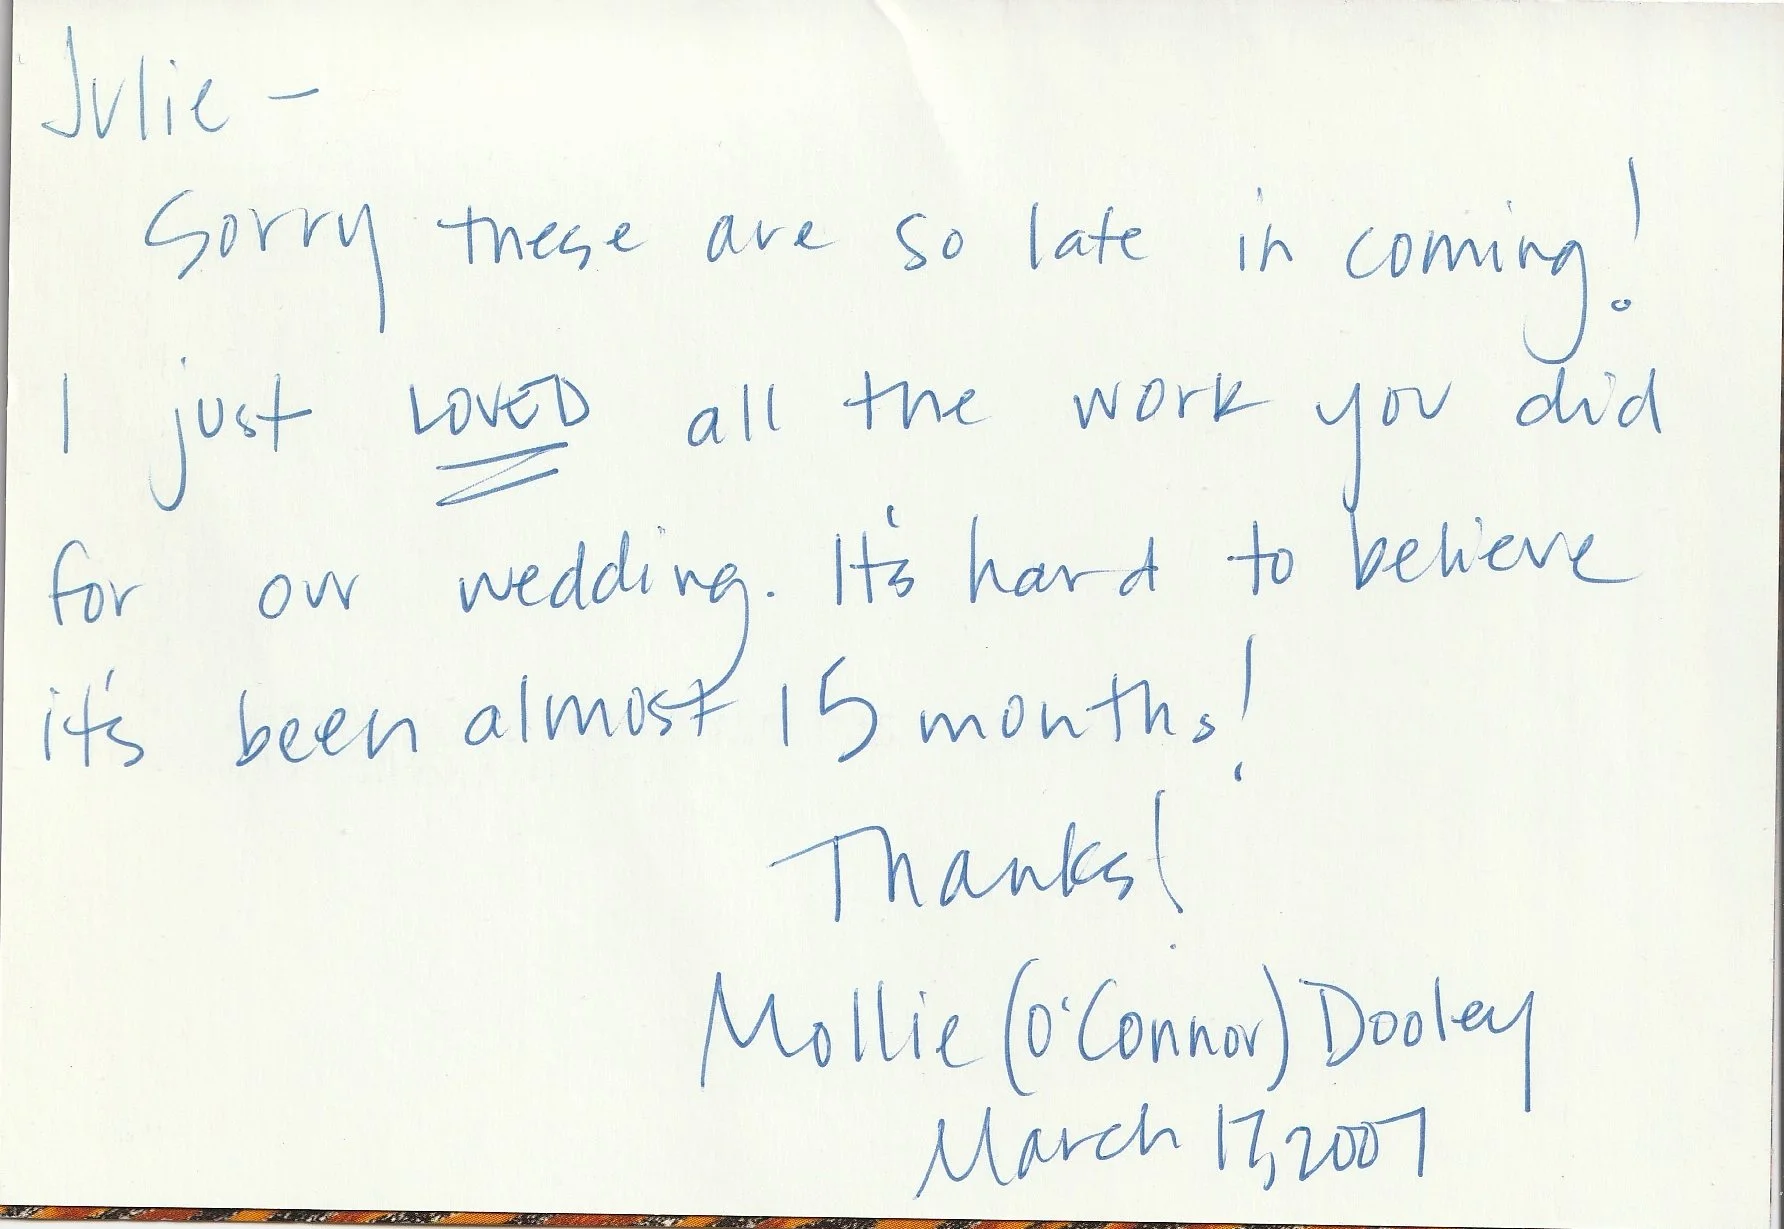 Julie -
Sorry these are so late in coming!
I just LOVED all the work you did
for our wedding. It's hard to believe
it's been almost 15 months!
Thanks!
Mollie (O'Connor) Dooley
March 17, 2007